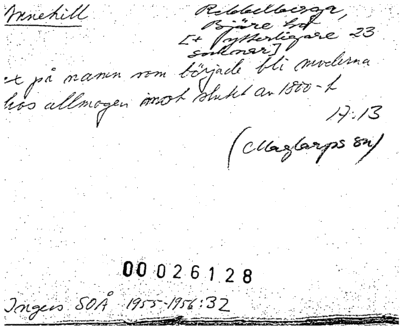 Innehill
Rebbelberga,
Bjäre hd
[+ ytterligare 23
socknar]
et på namn som började bli moderna
hos allmogen mot slutet av 1800-t
17:13
(Maglarps sn)
00 026128
Ingers SOÅ 1955-1956:32